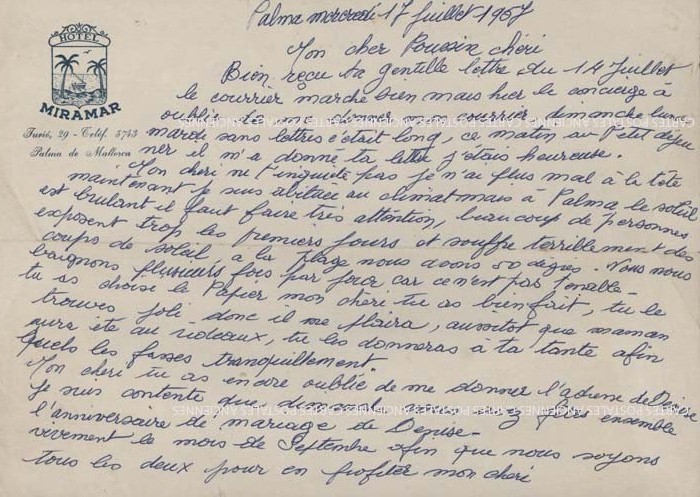 Palma mercredi 17 juillet 1957
HOTEL
MIRAMAR
Turis, 29 - Telif. 3743
Palma de Mallorca
Mon cher Poussin chéri
Bien reçu ta gentille lettre du 14 Juillet
le courrier marche bien mais hier le concierge a
oublié de dimanche lundi
mardi sans lettres c'était long, ce matin au Petit déjeu
ner il m'a donné ta lettre j'étais heureuse.
Mon chéri ne t'inquiète pas je n'ai plus mal à la tête
maintenant je suis abituée au climat mais à Palma le soleil
est brulant il faut faire très attention, beaucoup de personnes
exposent trop les premiers jours et souffre terriblement des
coups de soleil a la plage nous avons 50 degrés. Nous nous
baignons plusieurs fois par jour car ce n'est pas tenable
tu as choisi le Papier mon chéri tu as bien fait, tu le
trouves joli donc il me plaira, aussitot que maman
aura été au rideaux, tu les donneras à ta tante afin
quels les fasses tranquillement.
Mon chéri tu as encore oublié de me donner l'adresse de Denise
Je suis contente que dimanche fêter ensemble
l'anniversaire de mariage de Denise-
vivement le mois de Septembre afin que nous soyons
tous les deux pour en profiter mon chéri
CARTES POSTALES ANCIENNES